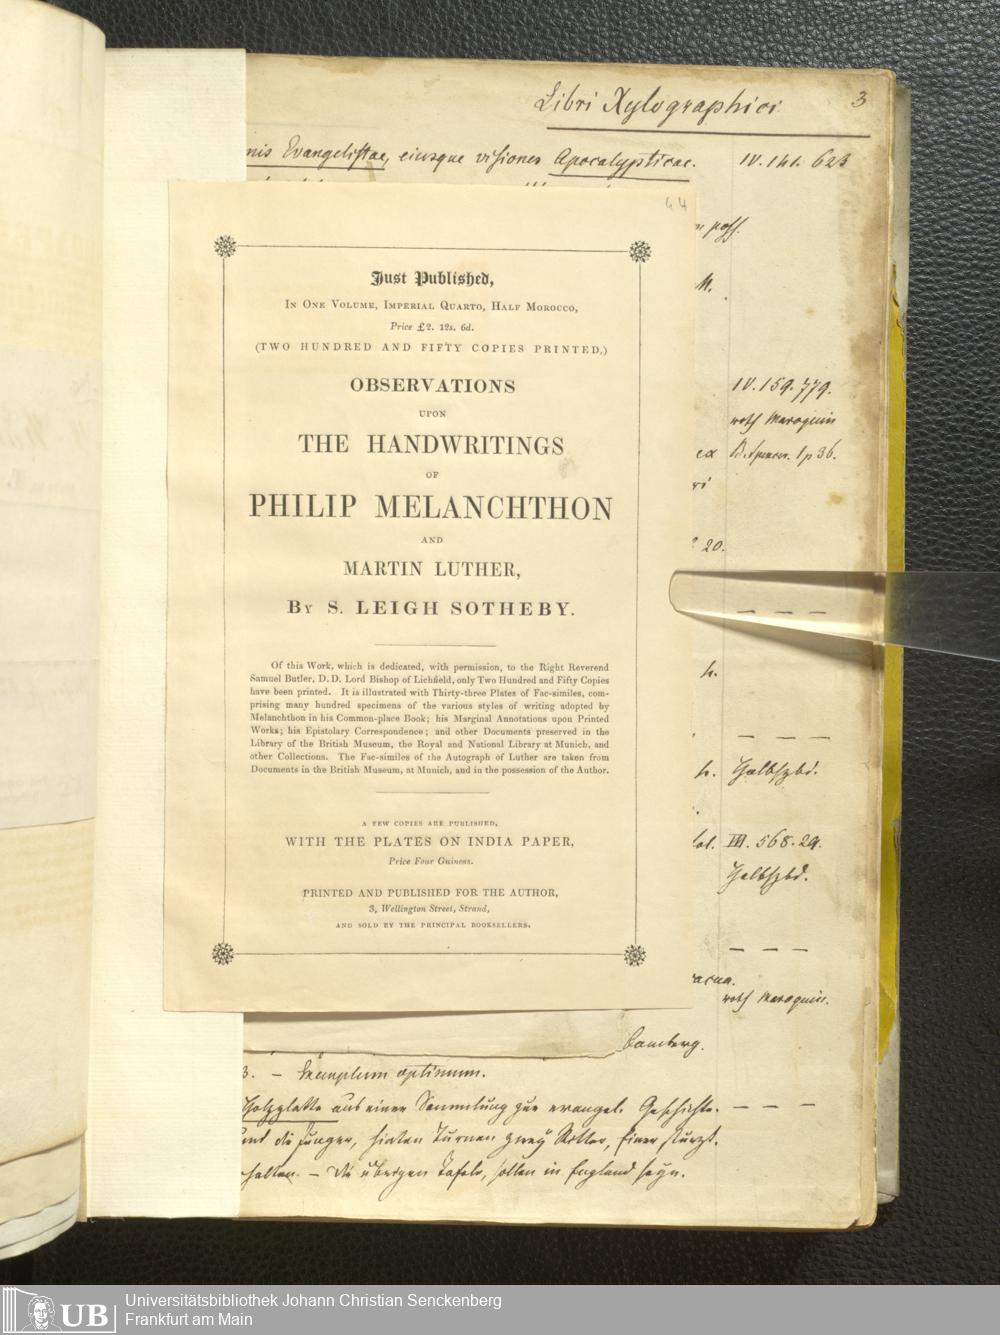 Libri Xylographici
3
nis Evangelistae, eiusque visiones Apocalypticae.
IV. 141. 623
44
Just Published,
In One Volume, Imperial Quarto, Half Morocco,
Price £2. 12s. 6d.
(TWO HUNDRED AND FIFTY COPIES PRINTED,)
OBSERVATIONS
UPON
THE HANDWRITINGS
OF
PHILIP MELANCHTHON
AND
MARTIN LUTHER,
By S. LEIGH SOTHEBY.
Of this Work, which is dedicated, with permission, to the Right Reverend
Samuel Butler, D.D. Lord Bishop of Lichfield, only Two Hundred and Fifty Copies
have been printed. It is illustrated with Thirty-three Plates of Fac-similes, com-
prising many hundred specimens of the various styles of writing adopted by
Melanchthon in his Common-place Book; his Marginal Annotations upon Printed
Works; his Epistolary Correspondence; and other Documents preserved in the
Library of the British Museum, the Royal and National Library at Munich, and
other Collections. The Fac-similes of the Autograph of Luther are taken from
Documents in the British Museum, at Munich, and in the possession of the Author.
A FEW COPIES ARE PUBLISHED,
WITH THE PLATES ON INDIA PAPER,
Price Four Guineas.
PRINTED AND PUBLISHED FOR THE AUTHOR,
3, Wellington Street, Strand,
AND SOLD BY THE PRINCIPAL BOOKSELLERS.
poss.
M.
IV. 159. 779.
roth Maroquin
ex B. Spencer. 1 p 36.
20.
h.
h. Halbfzbd.
III. 568. 29.
Halbfzbd.
roth Maroquin.
Bamberg.
3. – Exemplum optimum.
Holzplatte aus einer Sammlung zur evangel. Geschichte. – – –
und die Junger, hinten Turnen zwey Ritter, einer sturzt.
halten. – Die ubrigen Tafeln, sollen in England seyn.
UB
Universitätsbibliothek Johann Christian Senckenberg
Frankfurt am Main